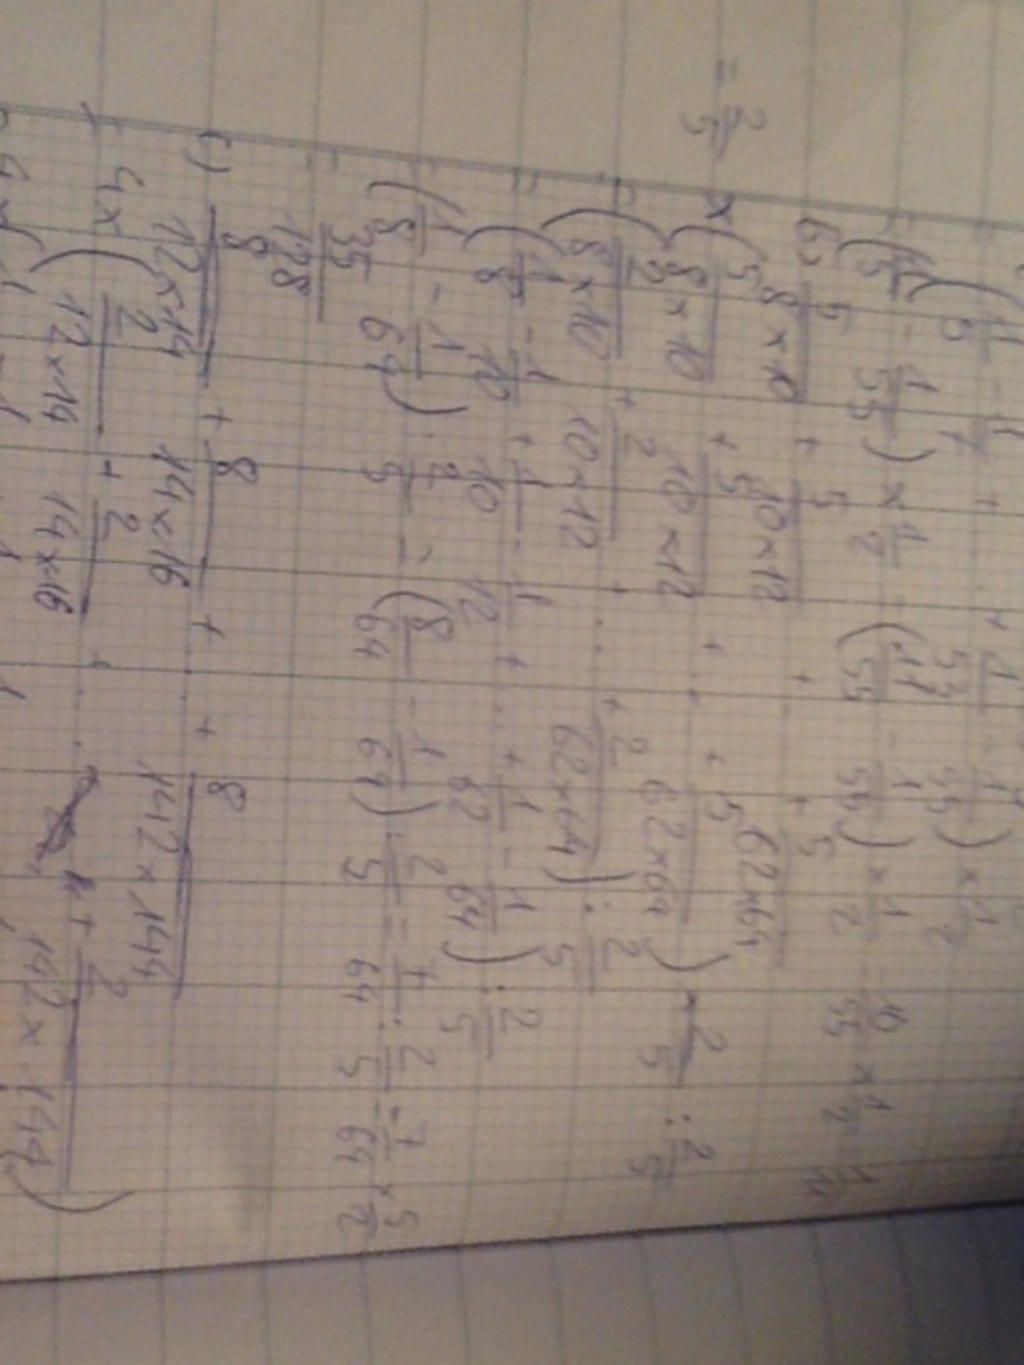 (1/5 - 1/7 + ... + 1/53 - 1/55) × 1/2
= (1/5 - 1/55) × 1/2 = (11/55 - 1/55) × 1/2 = 10/55 × 1/2 = 1/11
b) 5/8×10 + 5/10×12 + ... + 5/62×64
= (5/8×10 + 5/10×12 + ... + 5/62×64) × 2/5 : 2/5
= (2/8×10 + 2/10×12 + ... + 2/62×64) : 2/5
= (1/8 - 1/10 + 1/10 - 1/12 + ... + 1/62 - 1/64) : 2/5
= (1/8 - 1/64) : 2/5 = (8/64 - 1/64) : 2/5 = 7/64 : 2/5 = 7/64 × 5/2
= 35/128
c) 8/12×14 + 8/14×16 + ... + 8/142×144
= 4 × (2/12×14 + 2/14×16 + ... + 2/142×144)